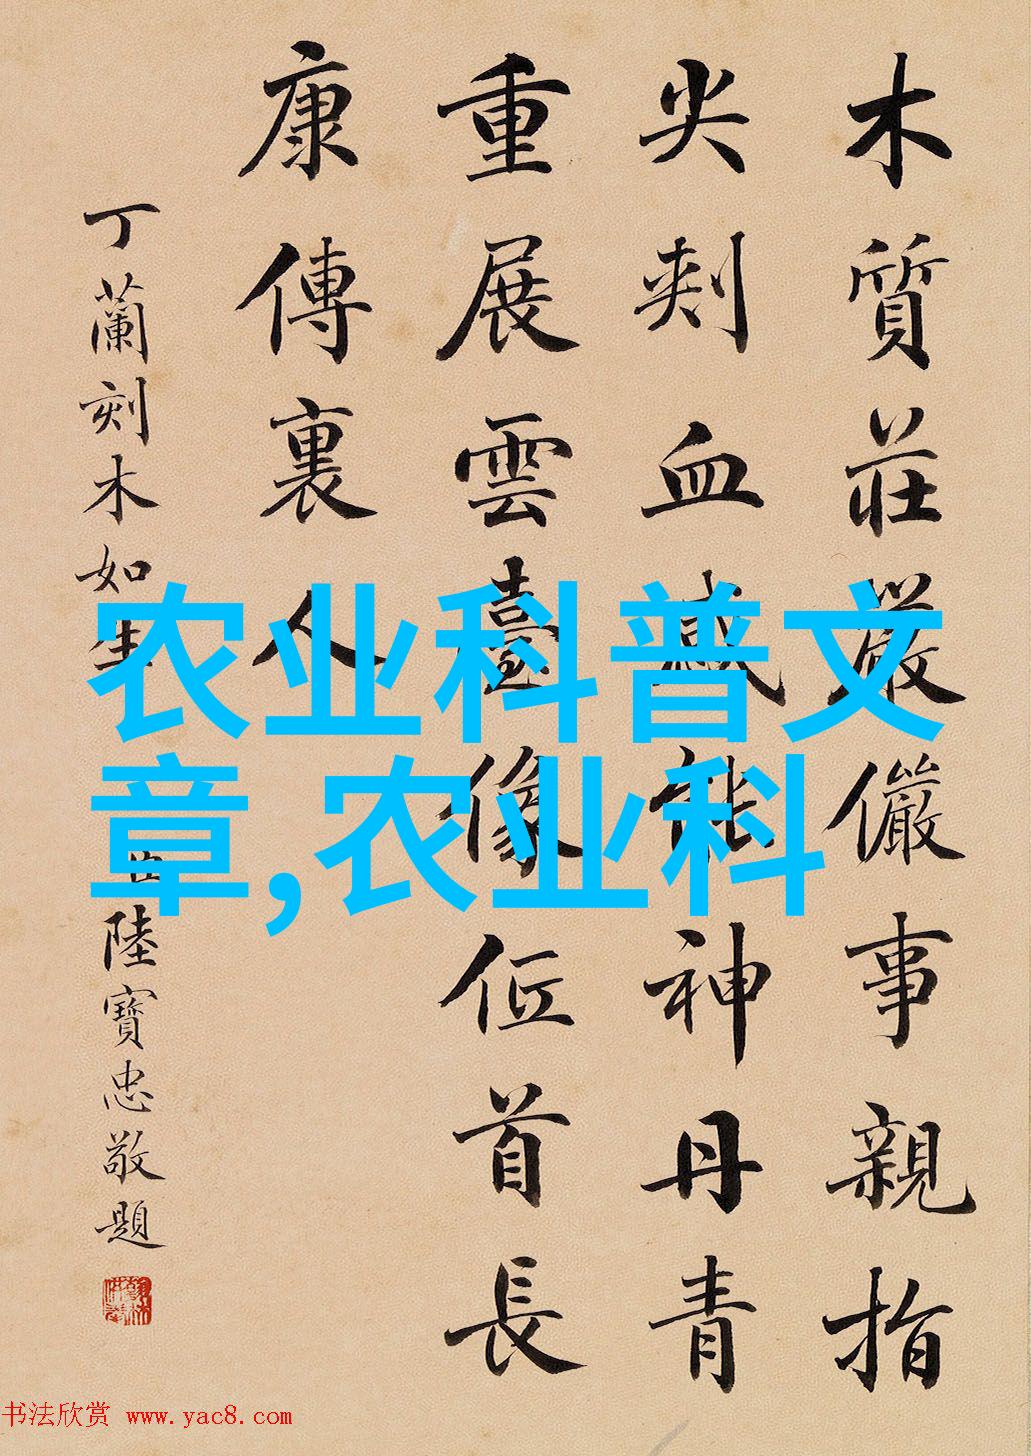 木質莊嚴儼事親指
尖刾血感能神丹青
重展雲臺像低首長
康傳裏人
丁蘭刻木如生
陸寶忠敬題
农业科普文
章,农业科
书法欣赏 www.yac8.com